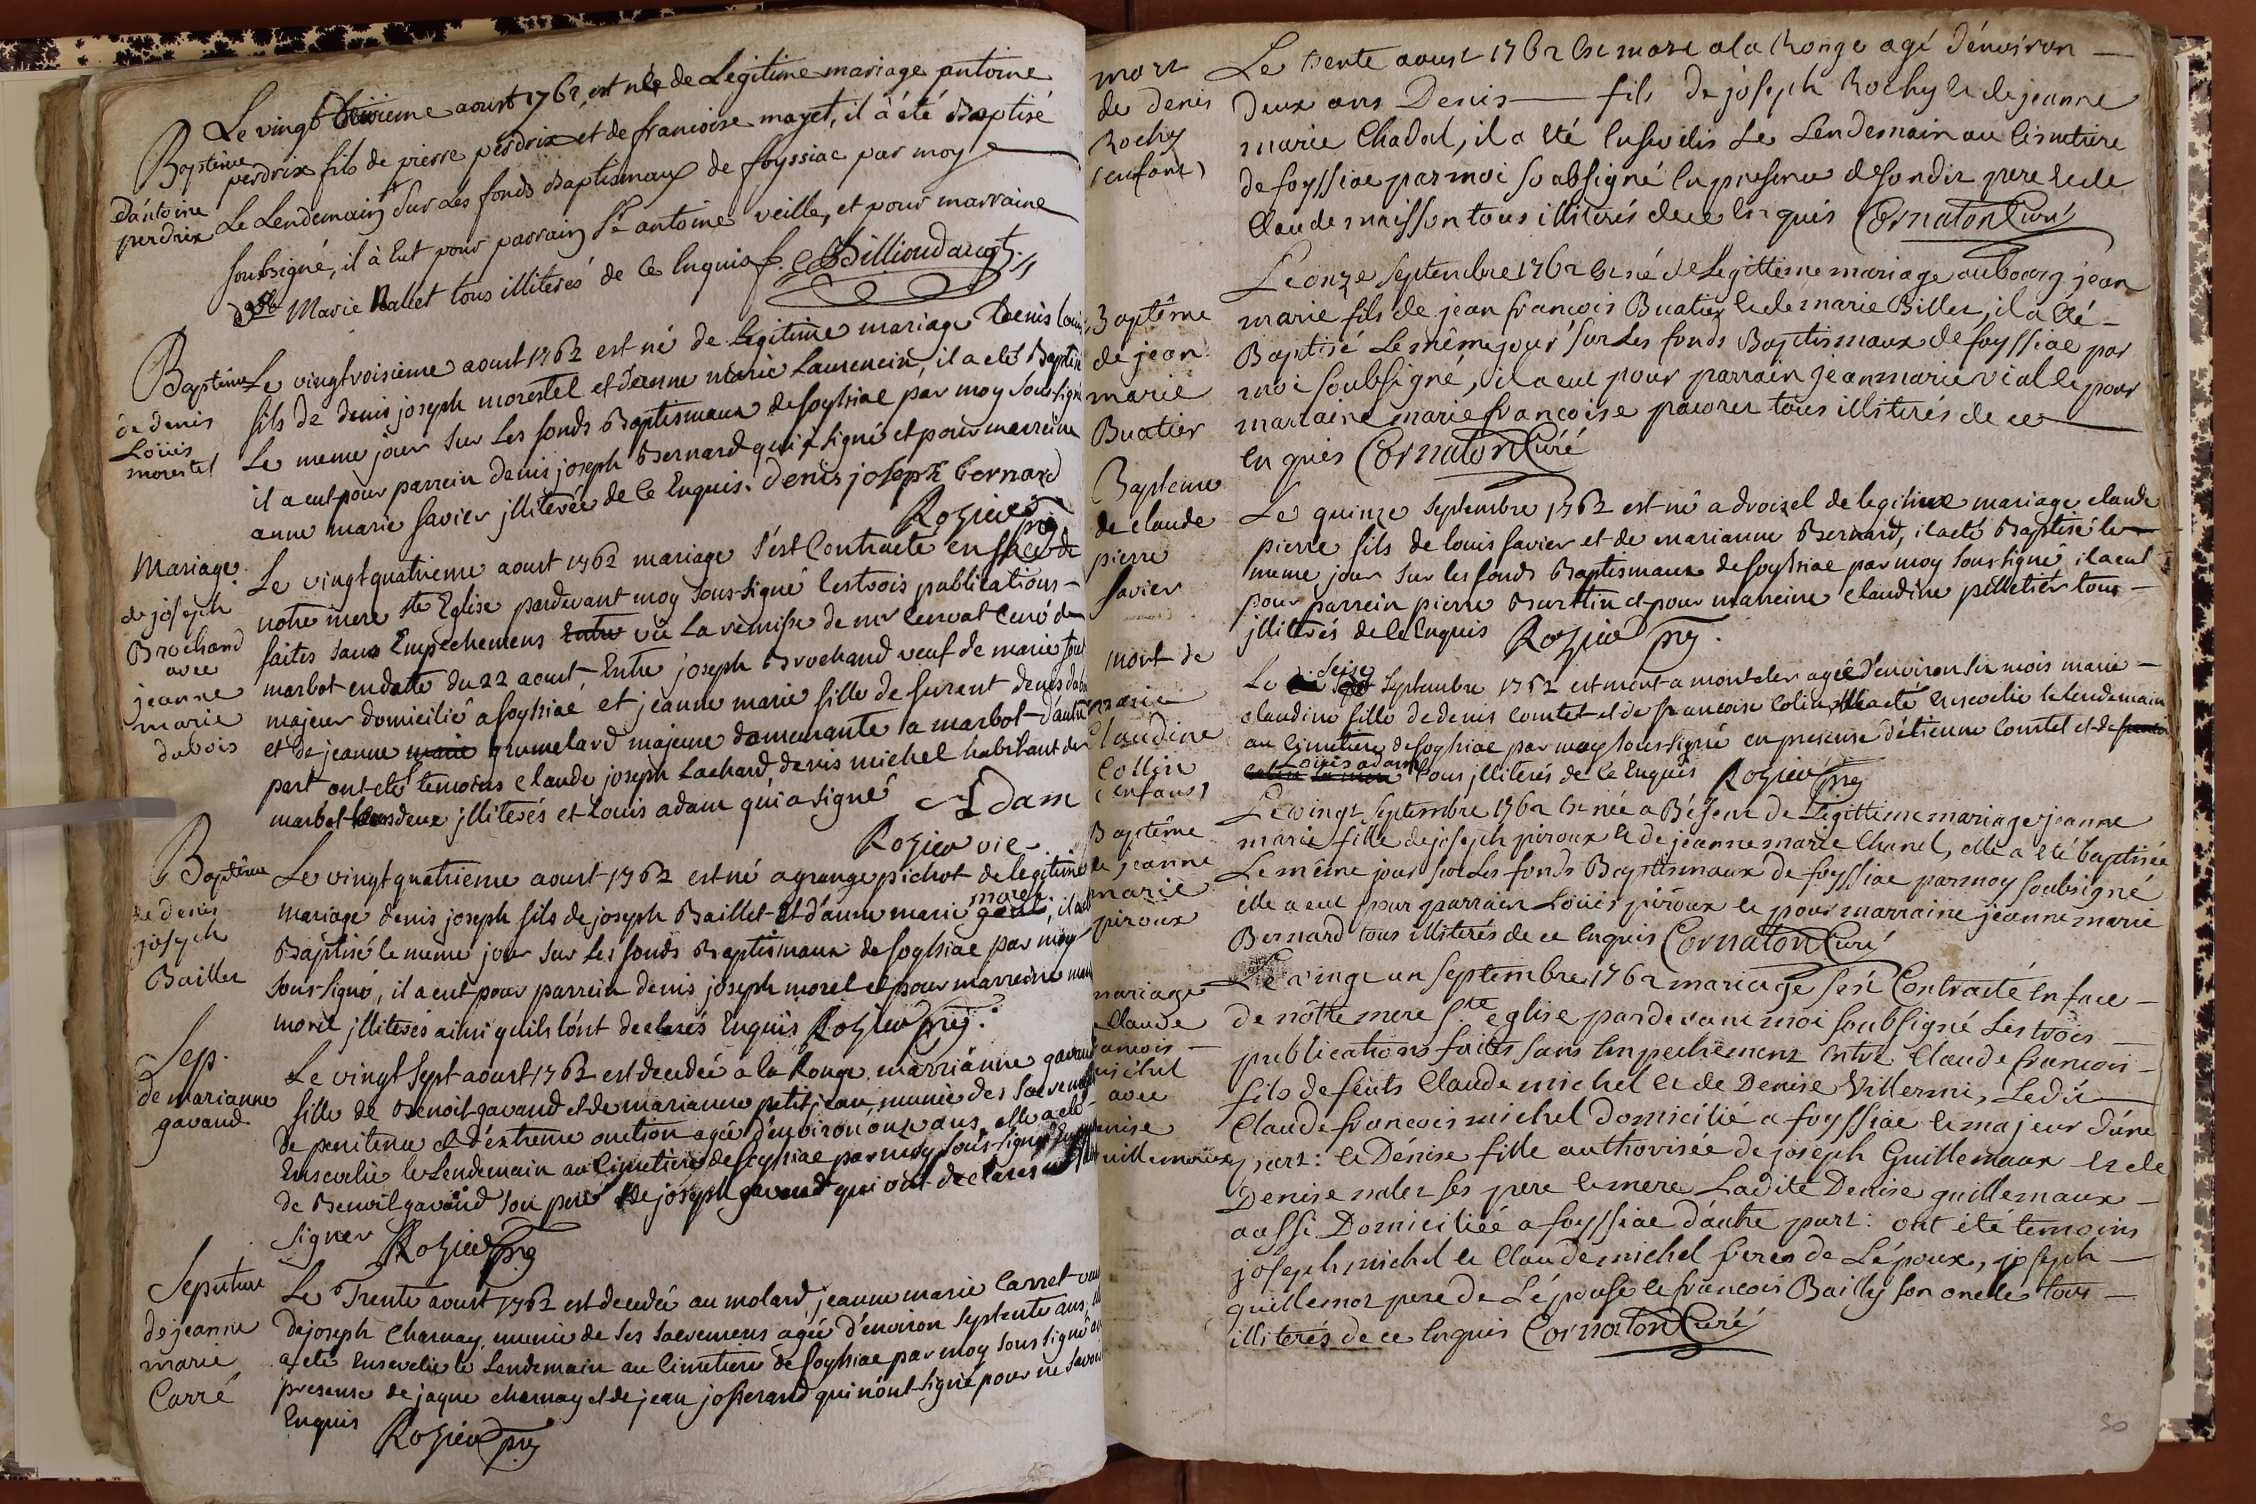 Le vingt troisieme aoust 1762, est né de Legitime mariage antoine
Baptême
d'antoine
perdrix
perdrix fils de pierre perdrix et de francoise mayet, il à été Baptisé
Le Lendemain sur Les fonds Baptismaux de foyssiac par moy
soubsigné, il à Eut pour parrain Sr antoine veille, et pour marraine
dlle Marie Nallet tous illiterés de ce Enquis f. Billioud
Baptême
de denis
Loüis
morestel
Le vingtroisieme aoust 1762 est né de Legitime mariage Denis Louis
fils de denis joseph morestel et d'anne marie Laurencin, il a eté Baptisé
Le meme jour sur Les fonds Baptismaux de foyssiac par moy sous-signé
il a eut pour parrein denis joseph Bernard qui a signé et pour marreine
anne marie favier jlliterée de ce Enquis. denis joseph bernard
Rozier prê
Mariage
de joseph
Brochand
avec
jeanne
marie
dubois
Le vingtquatrieme aoust 1762 mariage s'est Contracté en face de
notre mere ste Eglise pardevant moy sous-signé les trois publications -
faites sans Empechemens vü La remise de mr cuvat Curé de
marbot en datte du 22 aoust - Entre joseph Brochand veuf de marie
majeur domicilié a foyssiac et jeanne marie fille de furent denis dubois
et de jeanne marie grumelard majeure demeurante a marbot - d'autre
part ont eté temoins claude joseph Lachard, denis michel habitant de
marbot tous deux jlliterés et Louis adam qui a signé Adam
Rozier vic
Baptême
de denis
joseph
Baillet
Le vingt quatrieme aoust 1762 est né a grange pichot de legitime
mariage denis joseph fils de joseph Baillet - Et d'anne marie morel, il a
Baptisé le meme jour sur les fonds Baptismaux de foyssiac par moy
sous-signé, il a eut pour parrein denis joseph morel et pour marreine
morel jlliterés ainsi quils l'ont declarés Enquis Rozier prê
Sep.
de marianne
gavand
Le vingt sept aoust 1762 est decedée a la Ronge marrianne gavand
fille de Benoit gavand et de marianne petitjean, munie des sacremens
de penitence et d'extreme onction agée d'environ onze ans, elle a eté -
Ensevelie le Lendemain au Cimetiere de foyssiac par moy sous-signé
de Benoit gavand son pere et de joseph gavand qui ont declarés
signer Rozier prê
Sepulture
de jeanne
marie
Carré
Le Trente aoust 1762 est decedée au molard jeanne marie Carret
de joseph Charnay, munie de ses sacremens agée d'environ septente ans,
a eté Ensevelie le Lendemain au Cimetiere de foyssiac par moy sous signé
presense de jaque charnay et de jean josserand qui n'ont signé pour ne savoir
Enquis Rozier prê
mort
de Denis
Rochy
(enfant)
Le trente aoust 1762 Est mort a la Ronge agé d'environ
Deux ans Denis fils de joseph Rochy et de jeanne
marie Chadal, il a été Ensevelis Le Lendemain au Cimetiere
de foyssiac par moi soubsigné En presence de son dit pere et de
Claude maisson tous illiterés de ce Enquis Cornaton Curé
Baptême
de jean
marie
Buatier
Le onze Septembre 1762 Est né de Legittime mariage au bourg jean
marie fils de jean francois Buatier et de marie Billet, il a été -
Baptisé Le même jour sur Les fonds Baptismaux de foyssiac par
moi soubsigné, il a eut pour parrain jean marie vial et pour
marraine marie francoise tous illiterés de ce
Enquis Cornaton Curé
Bapteme
de claude
pierre
favier
Le quinze Septembre 1762 est né a droizel de legitime mariage claude
pierre fils de louis favier et de marianne Bernard, il a eté Baptisé le
meme jour sur les fonds Baptismaux de foyssiac par moy sous signé, il a eut
pour parrein pierre Burtin et pour marreine claudine pelletier tous -
jlliterés de ce Enquis Rozier prê.
mort de
marie
Claudine
Collin
(enfans)
Le seize Septembre 1762 est mort a montcler agée d'environ six mois marie -
claudine fille de denis comtet et de francoise Colin, elle a eté Ensevelie le lendemain
au Cimetiere de foyssiac par moy sous signé en presense d'etienne Comtet et de
Loüis adam tous jlliterés de ce Enquis Rozier prê
Baptême
de jeanne
marie
piroux
Le vingt Septembre 1762 Est née a Bésent de Legittime mariage jeanne
marie fille de joseph piroux et de jeanne marie Chanel, elle a été baptisée
Le même jour sur Les fonds Baptismaux de foyssiac par moy soubsigné
elle a eut pour parrain Loüis piroux et pour marraine jeanne marie
Bernard tous illiterés de ce Enquis Cornaton Curé
mariage
Claude
francois -
michel
avec
Denise
Guillemaux
Le vingt un Septembre 1762 mariage s'est Contracté En face -
de nôtre mere Ste eglise pardevant moi soubsigné Les trois -
publications faites sans Empechement Entre Claude francois -
fils de feuts Claude michel et de Denise Villermi, Ledit
Claude francois michel Domicilié a foyssiac et majeur d'une
part : et Dénise fille authorisée de joseph Guillemaux et de
Denise nalet ses pere et mere Ladite Denise guillemaux -
aussi Domiciliée a foyssiac d'autre part : ont été temoins
joseph michel et Claude michel freres de L'époux, joseph -
guillemot pere de L'épouse et francois Bailly son oncle tous -
illiterés de ce Enquis Cornaton Curé
50